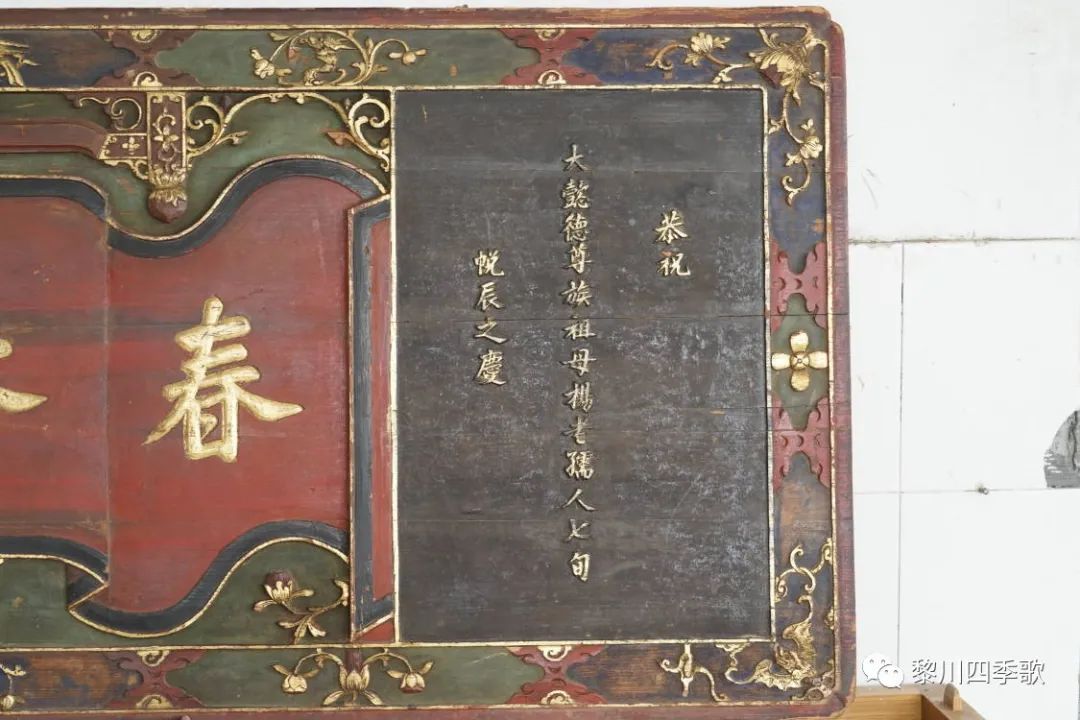 恭祝
大懿德尊族祖母楊老孺人七旬
帨辰之慶
春
黎川四季歌